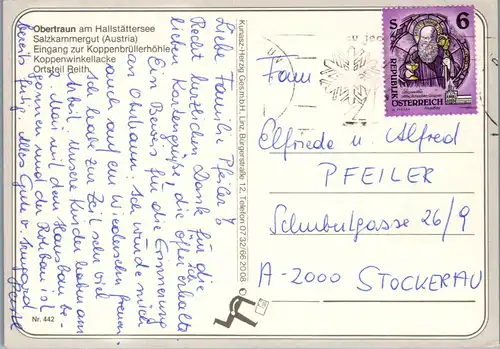 Obertraun am Hallstättersee
Salzkammergut (Austria)
Eingang zur Koppenbrüllerhöhle
Koppenwinkellacke
Ortsteil Reith
Liebe Familie Pfeiler!
Recht herzlichen Dank für die
lieben Kartengrüße, die ich
öfter erhalte
Ein Beweis für die Erinnerung
an Obertraun. Ich würde mich
auch auf ein Wiedersehen freuen.
Ich habe zur Zeit sehr viel
Arbeit. Unsere Kinder haben am
Mai mit dem Hausbau be-
gonnen und der Rohbau ist
bereits fertig. Alles Gute v. Irmgard
Nr. 442
Kunasz-Herzig Ges.m.b.H., Linz, Bürgerstraße 12, Telefon 07 32/66 20 08 ©
S 6
REPUBLIK
ÖSTERREICH
Fam
Elfriede u. Alfred
PFEILER
26/9
A-2000 STOCKERAU